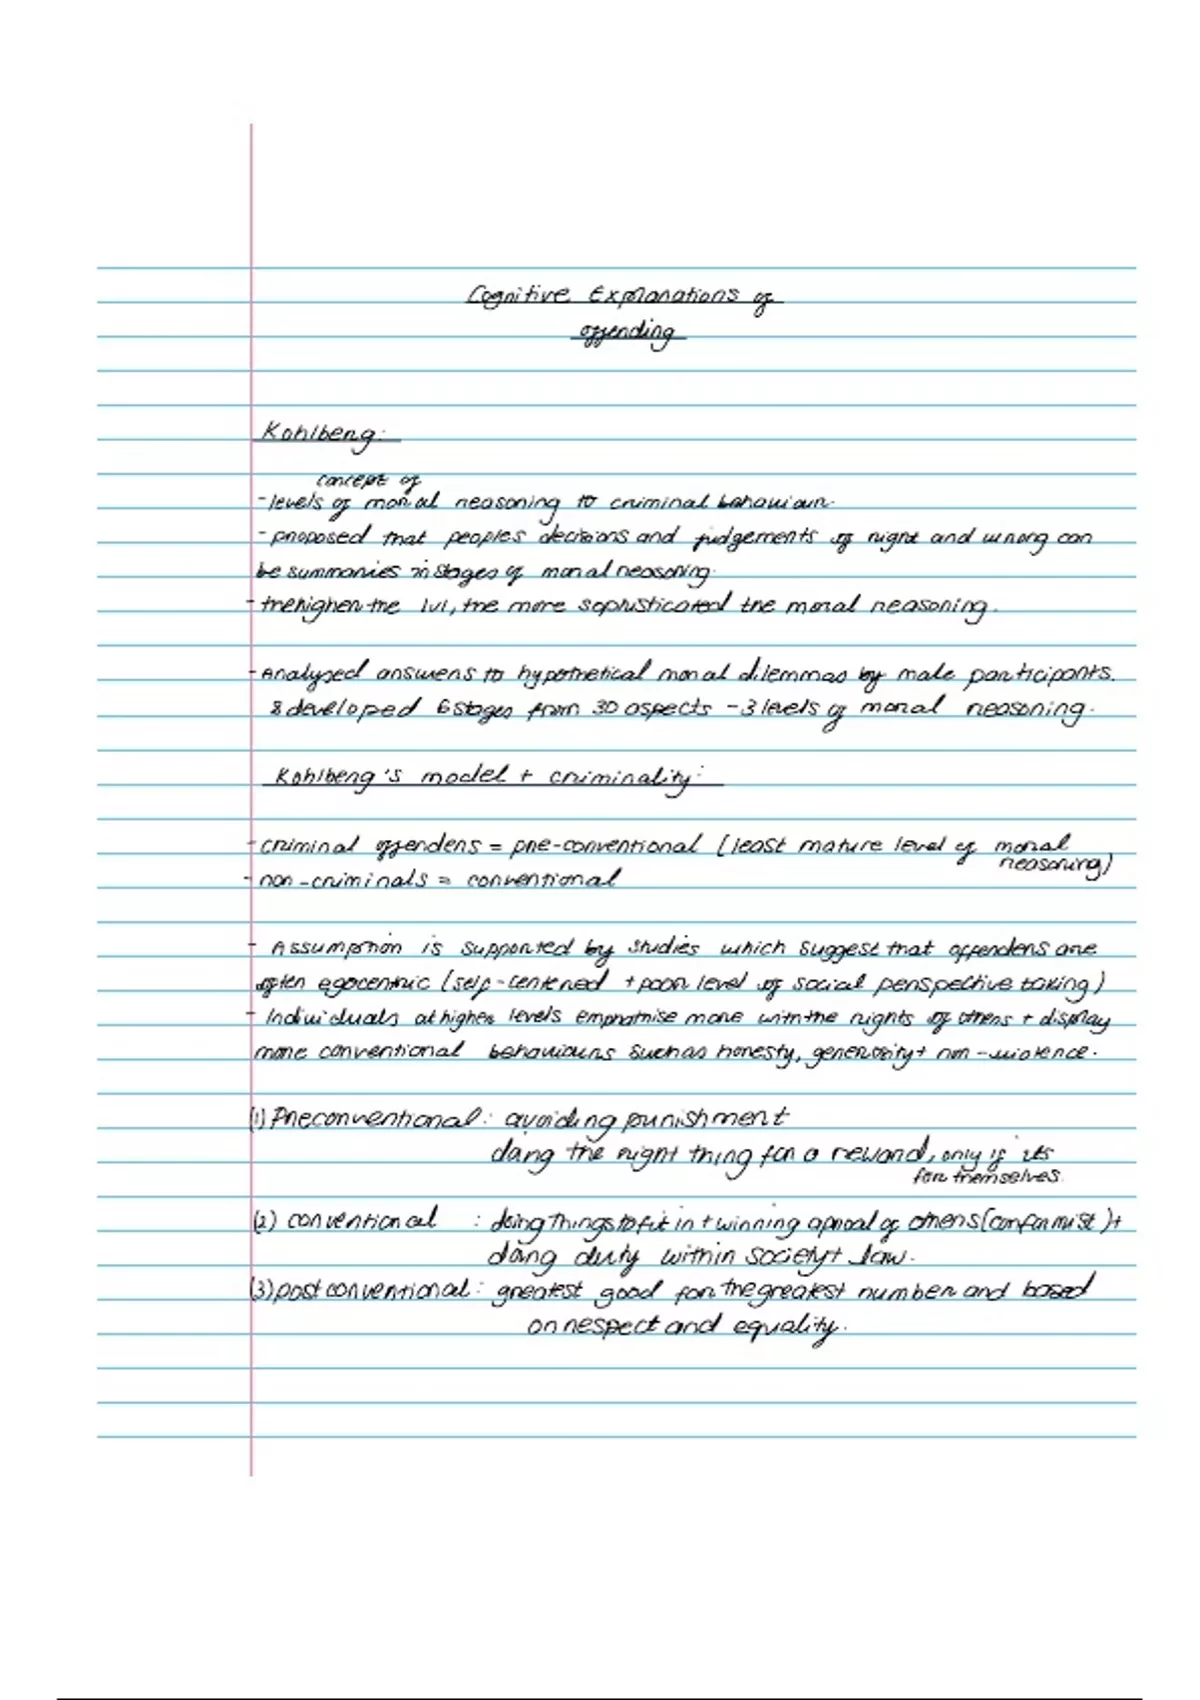 Cognitive Explanations of
offending
Kohlberg:
concept of
- levels of moral reasoning to criminal behaviour.
- proposed that peoples decisions and judgements of right and wrong can
be summaries in stages of moral reasoning.
- the higher the lvl, the more sophisticated the moral reasoning.
- Analysed answers to hypothetical moral dilemmas by male participants.
& developed 6 stages from 30 aspects - 3 levels of moral reasoning.
Kohlberg's model + criminality:
- criminal offenders = pre-conventional (least mature level of moral
reasoning)
- non-criminals = conventional
- Assumption is supported by studies which suggest that offenders are
often egocentric (self-centered + poor level of social perspective taking)
- Individuals at higher levels emphatise more with the rights of others + display
more conventional behaviours such as honesty, generosity + non-violence.
(1) Preconventional: avoiding punishment
doing the right thing for a reward, only if its
for themselves.
(2) conventional : doing things to fit in + winning aproal of others (conformist) +
doing duty within society + law.
(3) post conventional: greatest good for the greatest number and based
on respect and equality.